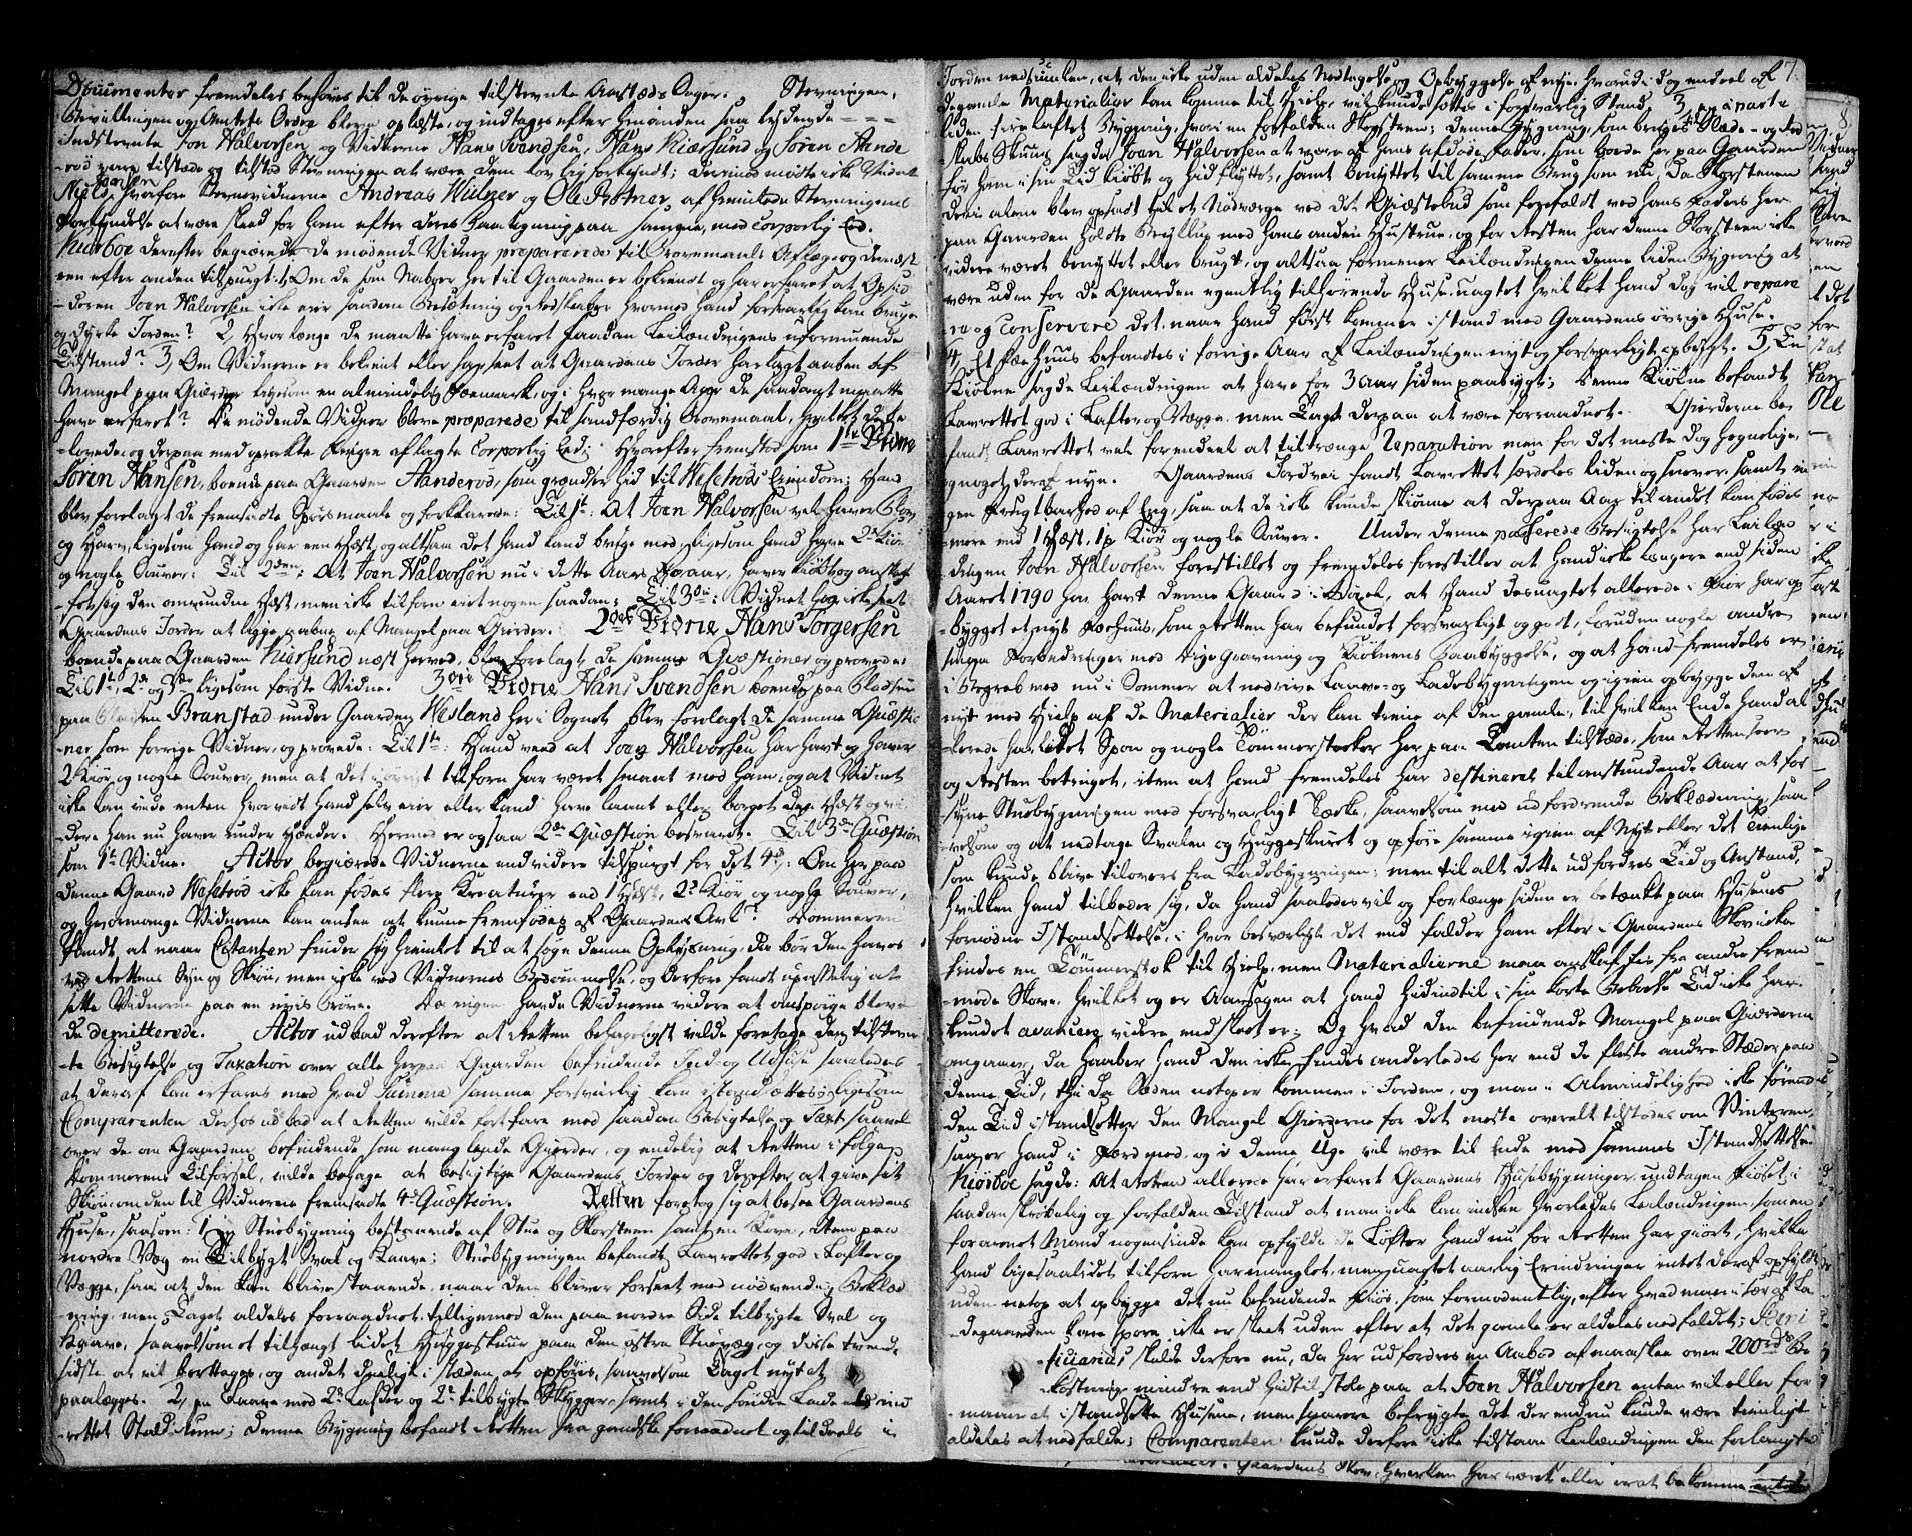 Documenter fremdeles behøves til de øvrige tilstevnte Aastæds Sager. Stevningen,
Bevillingen og Amtets Ordre bleve oplæste, og indtages efter hinanden saa lydende - - -
Indstevnte Jon Halvorsen og Vidnerne Hans Svendsen, Hans Kiærsund og Søren Aande
-rød vare tilstæde og tilstod Stevningen at være dem lovlig forkyndt; derimod mødte ikke Vidnet
Niels hvorfore Stevnevidnerne Andreas Wilner og Ole Postner afhiemlede Stevningens
Forkyndelse at være skeed for ham efter deres Paategning paa samme, med corporlig Eed.
Kiørboe derefter begiærede de mødende Vidner præparerede til Provemaals Aflæg og dernæst
een efter anden tilspurgt: 1, Om de som Naboer her til Gaarden er bekiendt og har erfaret at Opsid
-deren Joen Halvorsen ikke eier saadan Besætning og Redskaber hvormed hand forsvarlig kan bruge
og dyrke Jorden? 2, Hvor længe de maatte have erfaret saadan Leilændingens uformuende
Tilstand? 3, Om Vidnerne er bekient eller har seet at Gaardens Jorder har lagt aaben af
Mangel paa Gierder ligesom en almindelig Fæemark, og i hvor mange Aar de saadant maatte
have erfaret? De mødende Vidner bleve præparede til sandfærdig Provemaal, hvilket de be
-lovede og derpaa med oprakte Fingre aflagte Corporlig Eed; Hvorefter fremstod som 1te Vidne
Søren Hansen, boende paa Gaarden Aanderød, som grændser hid til Wesetrøds Eiendom; Hand
blev forelagt de fremsadte Spørsmaale og forklarede: Til 1te: At Joen Halvorsen vel haver Plov
og Harv, ligesom hand og har een Hæst, og altsaa det hand kand bruge med, ligesom hand have 2de Kiør
og nogle Souver: Til 2den: At Joen Halvorsen nu i dette Aars Foraar, haver kiøbt og anskaf
-fet sig den omrundne Hæst, men ikke tilforn eiet nogen saadan; Til 3die: Vidnet har ikke seet
Gaardens Jorder at ligge aabne af Mangel paa Gierder. 2det Vidne Hans Torgersen
boende paa Gaarden Kiersund næst herved, blev forelagt de samme Qvæstioner og provede:
Til 1te, 2de og 3de ligesom første Vidne. 3die Vidne Hans Svendsen boende paa Pladsen
paa Pladsen Branstad under Gaarden Wesland her i Sognet blev forelagt de samme Quæstio
-ner som forrige Vidner, og provede: Til 1te: Hand veed at Joen Halvorsen har havt og haver
2 Kiør og nogle Souver, men at det i øvrigt tilforn har været smaat med ham, og at Vidnet
ikke kan vide enten hvorvidt hand selv eier eller kand have laant eller borget den Hæst og vi
-dere han nu haver under Hænder. Hermed er ogsaa 2de Quæstion besvaret. Til 3de Quæstion
som 1te Vidne. Actor begierede Vidnerne end videre tilspurgt for det 4de: Om her paa
denne Gaard Wesetrød ikke kan fødes flere Kreaturer end 1 Hæst, 2de Kiør og nogle Souver,
og hvormange Vidnerne kan ansee at kunne fremfødes af Gaardens Avl? Dommeren
fandt, at naar Citanten finder sig hiemlet til at søge denne Oplysning, da bør den haves
ved Rettens Syn og Skiøn, men ikke ved Vidnernes Bedømmelse, og derfore fandt upasselig at
sette Vidnerne paa en nye Prøve. Da ingen havde Vidnerne videre at tilspørge bleve
de demitterede. Actor udbad derefter at Retten behageligst vilde foretage den tilstevn
-te Besigtelse og Taxation over alle her paa Gaarden befindende Ind- og Udhuse saaledes
at deraf kan erfares med hvad Summa samme forsvarlig kan istandsættes, ligesom
Comparenten derhos udbad at Retten vilde fortfare med saadan Besigtelse og Taxt saavel
over de om Gaarden befindende som manglende Gierder, og endelig at Retten i følge
Dommerens Tilførsel, vilde behage at besigtige Gaardens Jorder og derefter at give sit
Skiøn om den til Vidnerne fremsadte 4de Quæstion. Retten foretog sig at besee Gaardens
Huse, saasom: 1, En Stuebygning bestaaende af Stue og Skorsteen samt en Kove, item paa
nordre Væg en Tilbygt Sval og Kaave; Stuebygningen befandt Laurettet god i Lafter og
Vægge, saa at den kan blive staaende, naar den bliver forseet med nødvendig Beklæd
-ning, men Taget aldeles forraadnet, tilligemed den paa nordre Side tilbygte Sval og
Kaave, saavelsom et tilhængt lidet Huggeskuur paa den østre Stuevæg, og disse tvende
sidste at vil borttages, og andet dygtigt i stæden at opføres, saavelsom Taget nyt at
paalægges. 2, en Laave med 2de Lafder og 2de tilbygte Skygger, samt i den søndre Lade et ind
-rettet Stald Rum; denne Bygning befandt Retten fra gandske forraadnet og tildeels i
7.
Jorden nedsiunken, at den ikke uden aldeles Nedtagelse og Opbyggelse af nye, hvorudi dog endeel af
de gamle Materialier kan komme til Hielp, vil kunde sættes i forsvarlig Stand. 3, en aparte
liden firelaftet Bygning, hvori en forfalden Skorsteen; denne Bygning, som bruges til Slæde- og Red
-skabs Skuur sagde Joen Halvorsen at være af hans afdøde Fader, som boede her paa Gaarden
før ham i sin Tid kiøbt og hidflyttet, samt benyttet til samme Brug som nu, da Skorstenen
deri alene blev opsadt til et Nødværge ved det Giæstebud som forefaldt ved hans Faders her
paa Gaarden holdte Bryllup med hans anden Hustrue, og for Resten har denne Skorsteen ikke
videre været benyttet eller brugt, og altsaa formener Leilændingen denne liden Bygning at
være uden for de Gaarden egentlig tilhørende Huse, uagtet hvilket hand dog vil repare
re og conservere det, naar hand først kommer i stand med Gaardens øvrige Huse.
4, Et Fæehuus befandtes i forrige Aar af Leilændingen nyt og forsvarligt opbygt. 5, En
Kiølne sagde Leilændingen at have for 3 Aar siden paabygt; denne Kiølne befandt
Laurettet god i Lafter og Vægge, men Taget derpaa at være forraadnet. Gierderne be
fandt Laurettet vel for endeel at tiltrænge Reparation men for det meste dog hegnelige,
og noget deraf nye. Gaardens Jordvei fandt Laurettet særdeles liden og snever, samt in
gen Frugtbarhed af Eng, saa at de ikke kunde skiønne at derpaa Aar til andet kan fødes
mere end 1 Hæst, 1 p Kiør og nogle Souver. Under denne passerede Besigtelse har Leilæn
dingen Joen Halvorsen forestillet og fremdeles forestiller at hand ikke længere end siden
Aaret 1790 har havt denne Gaard i Bøxel, at hand desuagtet allerede i Fior har op
-bygget et nyt Fæehuus, som Retten har befundet forsvarligt og godt, foruden nogle andre
smaa Forbedringer med Dige Gravning og Kiølnens Paabyggelse, og at hand fremdeles er
i Begreb med nu i Sommer at nedrive Laave- og Ladebygningen og igien opbygge den af
nyt med Hielp af de Materialier der kan tiene af den gamle, til hvilken Ende hand al
-lerede har kiøbt Spon og nogle Tømmerstokker her paa Tomten tilstæde, som Retten seer
og Retten betinget, item at hand fremdeles har destineret til anstundende Aar at for
syne Stuebygningen med forsvarligt Tække, saavelsom med udfordrende Beklædning, saa
velsom og at nedtage Svalen og Huggeskuret og opføre samme igien af Nyt eller det Tienlige
som kunde blive tilovers fra Ladebygningen; men til alt dette udfordres Tid og Anstand,
hvilken hand tilbeder sig, da hand saaledes vil og for længe siden er betænkt paa Husenes
fornødne Istandsettelse, i hvor besværligt det end falder ham efter i Gaardens Skov ikke
findes en Tømmerstok til Hielp, men Materialierne maa anskaffes fra andre frem
mede Skove, hvilket og er Aarsagen at hand hidindtil i sin korte Beboelses Tid ikke har
kundet avancere videre end skeet er; Og hvad den befindende Mangel paa Gierderne
angaaer, da haaber hand den ikke findes anderledes her end de fleste andre Stæder paa
denne Tid, thi da Sæden netop er kommen i Jorden, og man i Almindelighed ikke førend
den Tid istandsetter den Mangel Gierderne for det meste overalt tilstødes om Vinteren,
saa er hand i Færd med, og i denne Uge vil være til Ende med sammes Istandsettelse.
Kiørboe sagde: At Retten allerede har erfaret Gaardens Huusebygninger undtagen Fiøset, i
saadan skrøbelig og forfalden Tilstand at man ikke kan indsee hvorledes Leilændingen, som en
forarmet Mand nogensinde kan opfylde de Løfter hand nu for Retten har giort, hvilke
hand ligesaalidet tilforn har manglet, men uagtet aarlig Erindringer intet deraf opfyldt
uden netop at opbygge det nu befindende Fiøs, som formodentlig, efter hvad man i sær af La
degaarden kan spore, ikke er skeet uden efter at det gamle er aldeles nedfaldet; Requi
-sitianus skulde derfore nu, da her udfordres en Aabod af maaskee over 200rd Be
-kostning mindre end hidtil stole paa at Joen Halvorsen enten vil eller for
-maaer at istandsette Husene, men snarere befrygte det der endnu kunde være tienligt
aldeles at nedfalde; Comparenten kunde derfore ikke tilstaae Leilændingen den forlangte
Gaardens Skov, hverken har været eller er at bekomme